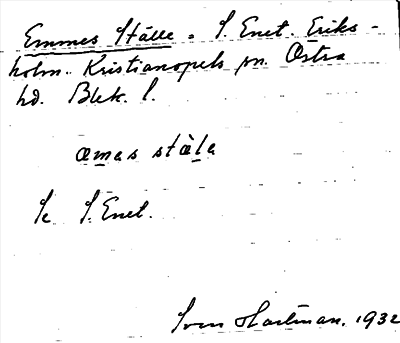 Emmes Ställe = S. Enet. Eriks-
holm. Kristianopels sn. Östra
hd. Blek. l.
æmas stàla
Se S. Enet.
Sven Hartman. 1932